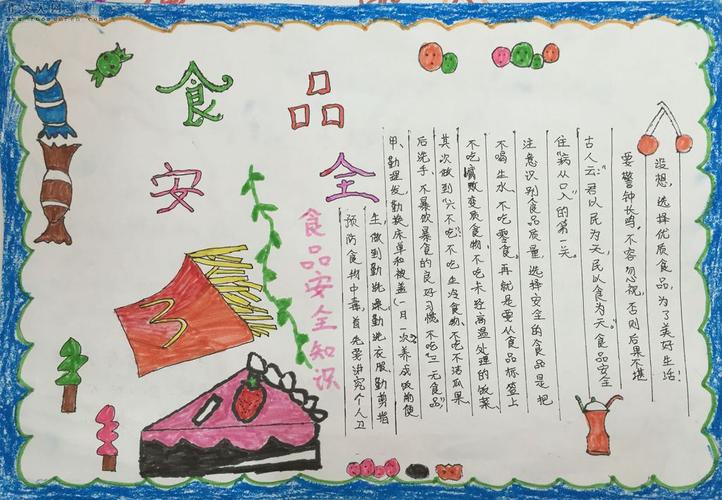 食品
安全
食品安全知识
预防食物中毒首先要讲究个人卫
生,做到勤洗澡勤洗衣服勤剪指
甲,勤理发勤换床单和被盖(一月一次)养成饭前便
后洗手,不暴饮暴食的良好习惯不吃"三无食品"
其次做到"六不吃"不吃生冷食物,不吃不洁瓜果
不吃腐败变质食物,不吃未经高温处理的饭菜,
不喝生水,不吃零食。再就是要从食品标签上
注意识别食品质量,选择安全的食品是把
住"病从口入"的第一关。
古人云:"君以民为天,民以食为天"食品安全
要警钟长鸣,不容忽视,否则后果不堪
没想,选择优质食品,为了美好生活!